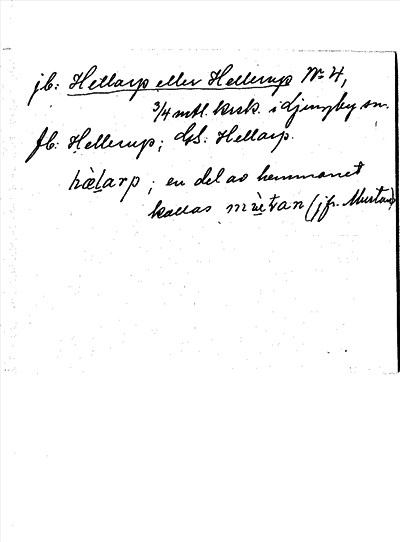 jb: Hellarp eller Hellerup No 4,
3/4 mtl. krsk. i Ljungby sn.
Jb: Hellerup; GS: Hellarp.
hæ̀larp; en del av hemmanet
kallas (jfr. Murtan)